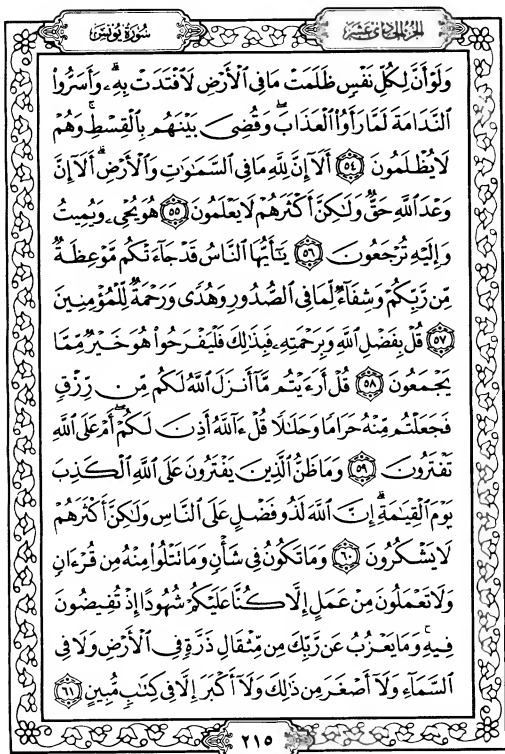 سُورَةُ يُونُسَ
الجُزْءُ الحَادِي عَشَرَ
وَلَوْ أَنَّ لِكُلِّ نَفْسٍ ظَلَمَتْ مَا فِي ٱلْأَرْضِ لَٱفْتَدَتْ بِهِۦۗ وَأَسَرُّوا۟
ٱلنَّدَامَةَ لَمَّا رَأَوُا۟ ٱلْعَذَابَۖ وَقُضِىَ بَيْنَهُم بِٱلْقِسْطِۚ وَهُمْ
لَا يُظْلَمُونَ ٥٤ أَلَآ إِنَّ لِلَّهِ مَا فِي ٱلسَّمَٰوَٰتِ وَٱلْأَرْضِۗ أَلَآ إِنَّ
وَعْدَ ٱللَّهِ حَقٌّ وَلَٰكِنَّ أَكْثَرَهُمْ لَا يَعْلَمُونَ ٥٥ هُوَ يُحْىِۦ وَيُمِيتُ
وَإِلَيْهِ تُرْجَعُونَ ٥٦ يَٰٓأَيُّهَا ٱلنَّاسُ قَدْ جَآءَتْكُم مَّوْعِظَةٌ
مِّن رَّبِّكُمْ وَشِفَآءٌ لِّمَا فِي ٱلصُّدُورِ وَهُدًى وَرَحْمَةٌ لِّلْمُؤْمِنِينَ
٥٧ قُلْ بِفَضْلِ ٱللَّهِ وَبِرَحْمَتِهِۦ فَبِذَٰلِكَ فَلْيَفْرَحُوا۟ هُوَ خَيْرٌ مِّمَّا
يَجْمَعُونَ ٥٨ قُلْ أَرَءَيْتُم مَّآ أَنزَلَ ٱللَّهُ لَكُم مِّن رِّزْقٍ
فَجَعَلْتُم مِّنْهُ حَرَامًا وَحَلَٰلًا قُلْ ءَآللَّهُ أَذِنَ لَكُمْۖ أَمْ عَلَى ٱللَّهِ
تَفْتَرُونَ ٥٩ وَمَا ظَنُّ ٱلَّذِينَ يَفْتَرُونَ عَلَى ٱللَّهِ ٱلْكَذِبَ
يَوْمَ ٱلْقِيَٰمَةِۗ إِنَّ ٱللَّهَ لَذُو فَضْلٍ عَلَى ٱلنَّاسِ وَلَٰكِنَّ أَكْثَرَهُمْ
لَا يَشْكُرُونَ ٦٠ وَمَا تَكُونُ فِي شَأْنٍ وَمَا تَتْلُوا۟ مِنْهُ مِن قُرْءَانٍ
وَلَا تَعْمَلُونَ مِنْ عَمَلٍ إِلَّا كُنَّا عَلَيْكُمْ شُهُودًا إِذْ تُفِيضُونَ
فِيهِۚ وَمَا يَعْزُبُ عَن رَّبِّكَ مِن مِّثْقَالِ ذَرَّةٍ فِي ٱلْأَرْضِ وَلَا فِي
ٱلسَّمَآءِ وَلَآ أَصْغَرَ مِن ذَٰلِكَ وَلَآ أَكْبَرَ إِلَّا فِي كِتَٰبٍ مُّبِينٍ ٦١
٢١٥